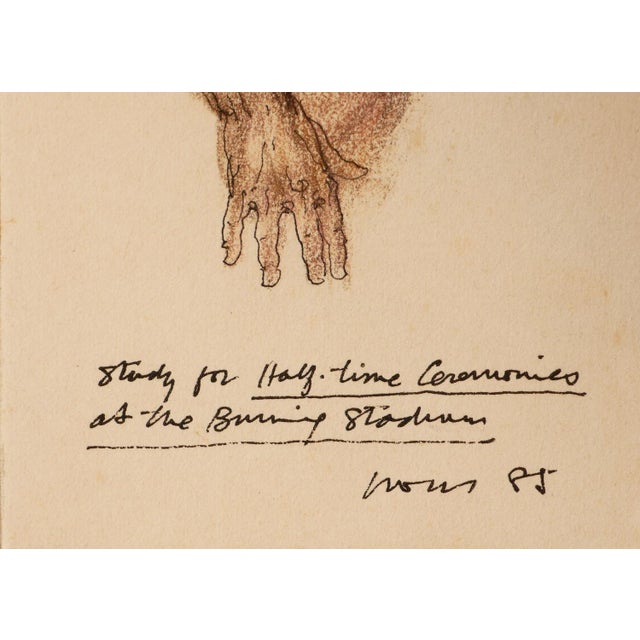 Study for Half-time Ceremonies
at the Burning Stadium
85